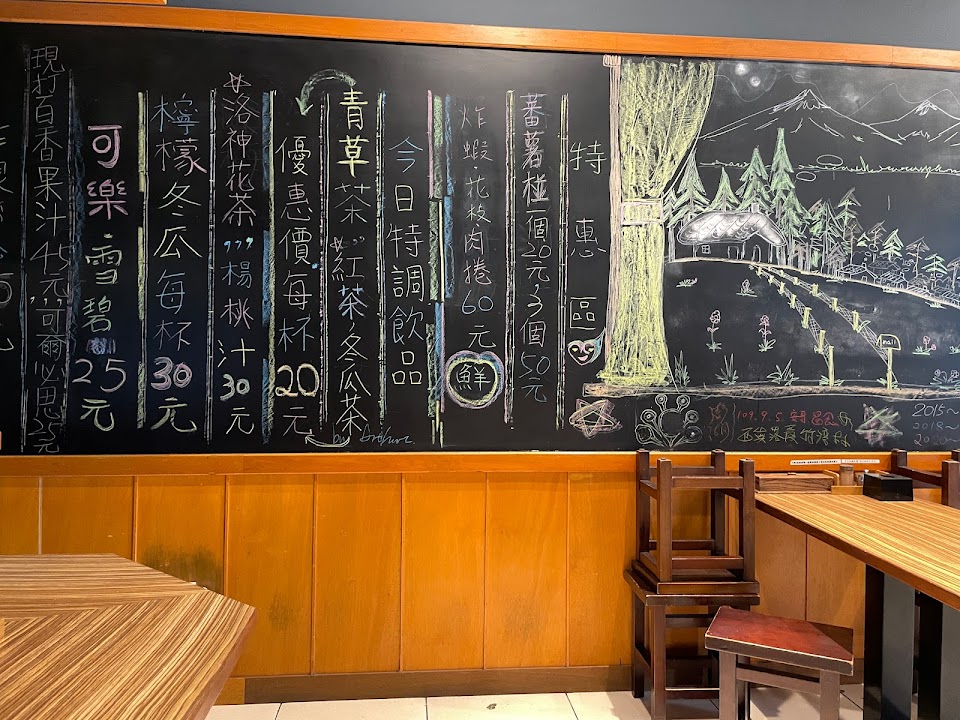 特惠區
蕃薯椪一個20元,3個50元
炸蝦.花枝肉捲60元
鮮
今日特調飲品
青草茶、紅茶、冬瓜茶
優惠價每杯20元
洛神花茶,,,楊桃汁30元
檸檬冬瓜每杯30元
可樂.雪碧25元
現打百香果汁45元,可爾必思25元
mail
109.9.5
2015~
2018~
2020~